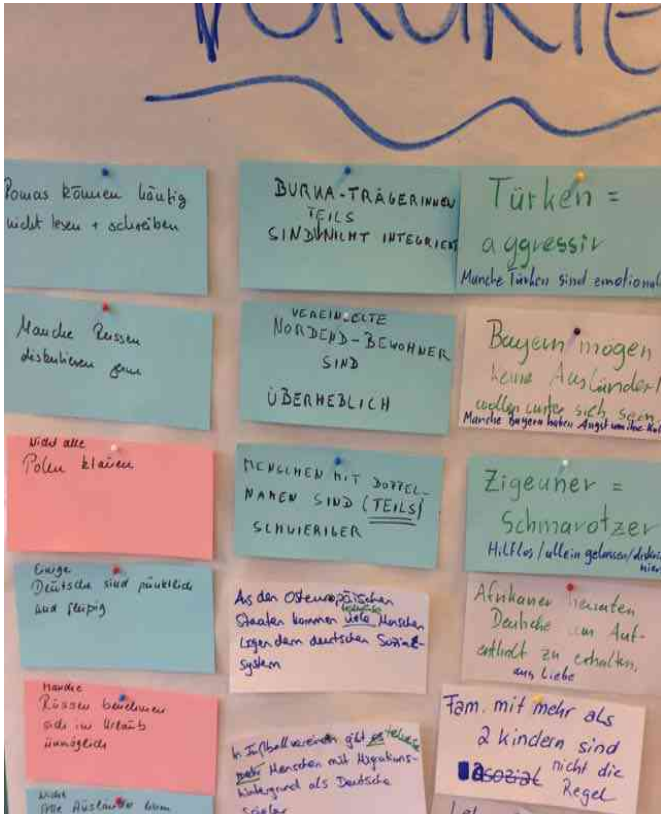 Romas können häufig
nicht lesen + schreiben
Manche Russen
diskutieren gern
Nicht alle
Polen klauen
Einige
Deutsche sind pünktlich
und fleißig
Manche
Russen benehmen
sich im Urlaub
unmöglich
Nicht
alle Ausländer
BURKA-TRÄGERINNEN
TEILS
SIND NICHT INTEGRIERT
VEREINZELTE
NORDEND-BEWOHNER
SIND
ÜBERHEBLICH
MENSCHEN MIT DOPPEL-
NAMEN SIND (TEILS)
SCHWIERIGER
Aus den Osteuropäischen
Staaten kommen viele Menschen
wegen dem deutschen Sozial-
system
In Fußballvereinen gibt es teilweise
mehr Menschen mit Migrations-
hintergrund als Deutsche
Spieler
Türken =
aggressiv
Manche Türken sind emotional
Bayern mögen
keine Ausländer/
wollen unter sich sein
Manche Bayern haben Angst um ihre
Zigeuner =
Schmarotzer
Hilflos / allein gelassen /
hier
Afrikaner heiraten
Deutsche um Auf-
enthalt zu erhalten.
aus Liebe
Fam. mit mehr als
2 Kindern sind
asozial nicht die
Regel